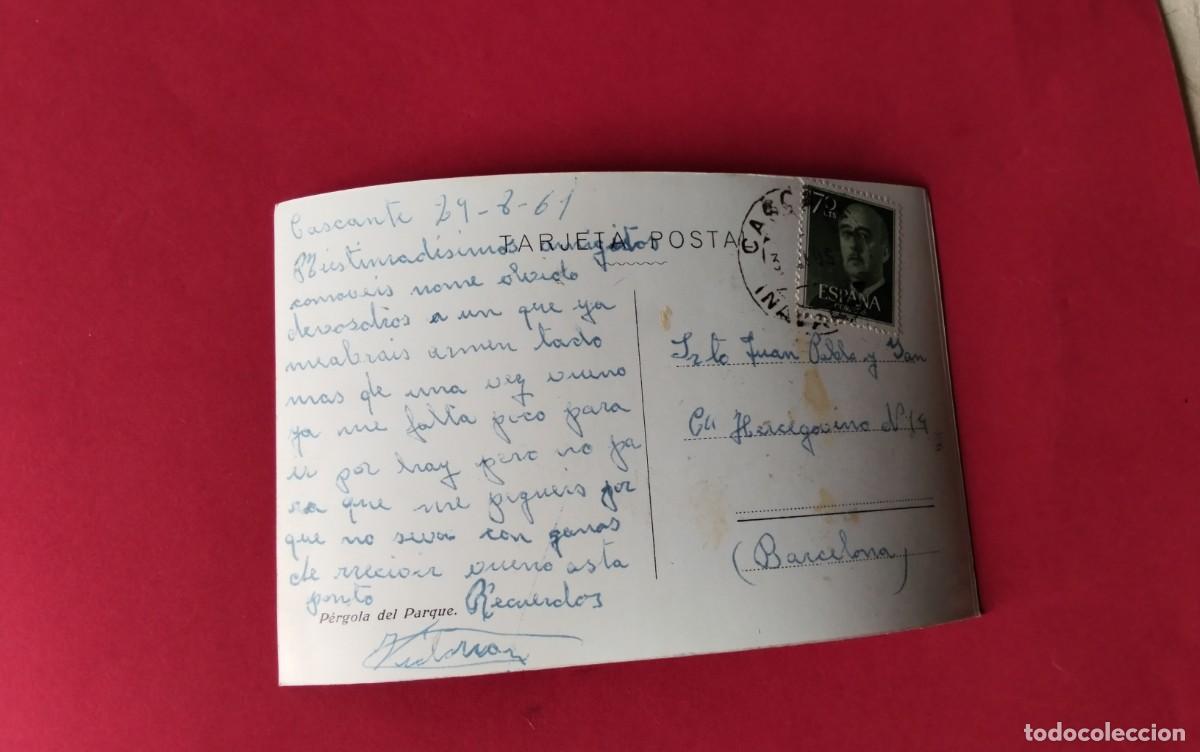 Cascante 29-8-61
TARJETA POSTAL
comoveis nome olvido
devosotros a un que ya
meabrais armen tado
mas de una vez vueno
ya me falta poco para
ir por hay pero no pa
ra que me pigueis por
que no seva con ganas
de vueno asta
ponto Recuerdos
Pérgola del Parque.
72
CTS
ESPAÑA
CASC
(NAVA
Sr to Juan Pablo y San
C/ Hercegovino Nº 14
(Barcelona)
todocoleccion